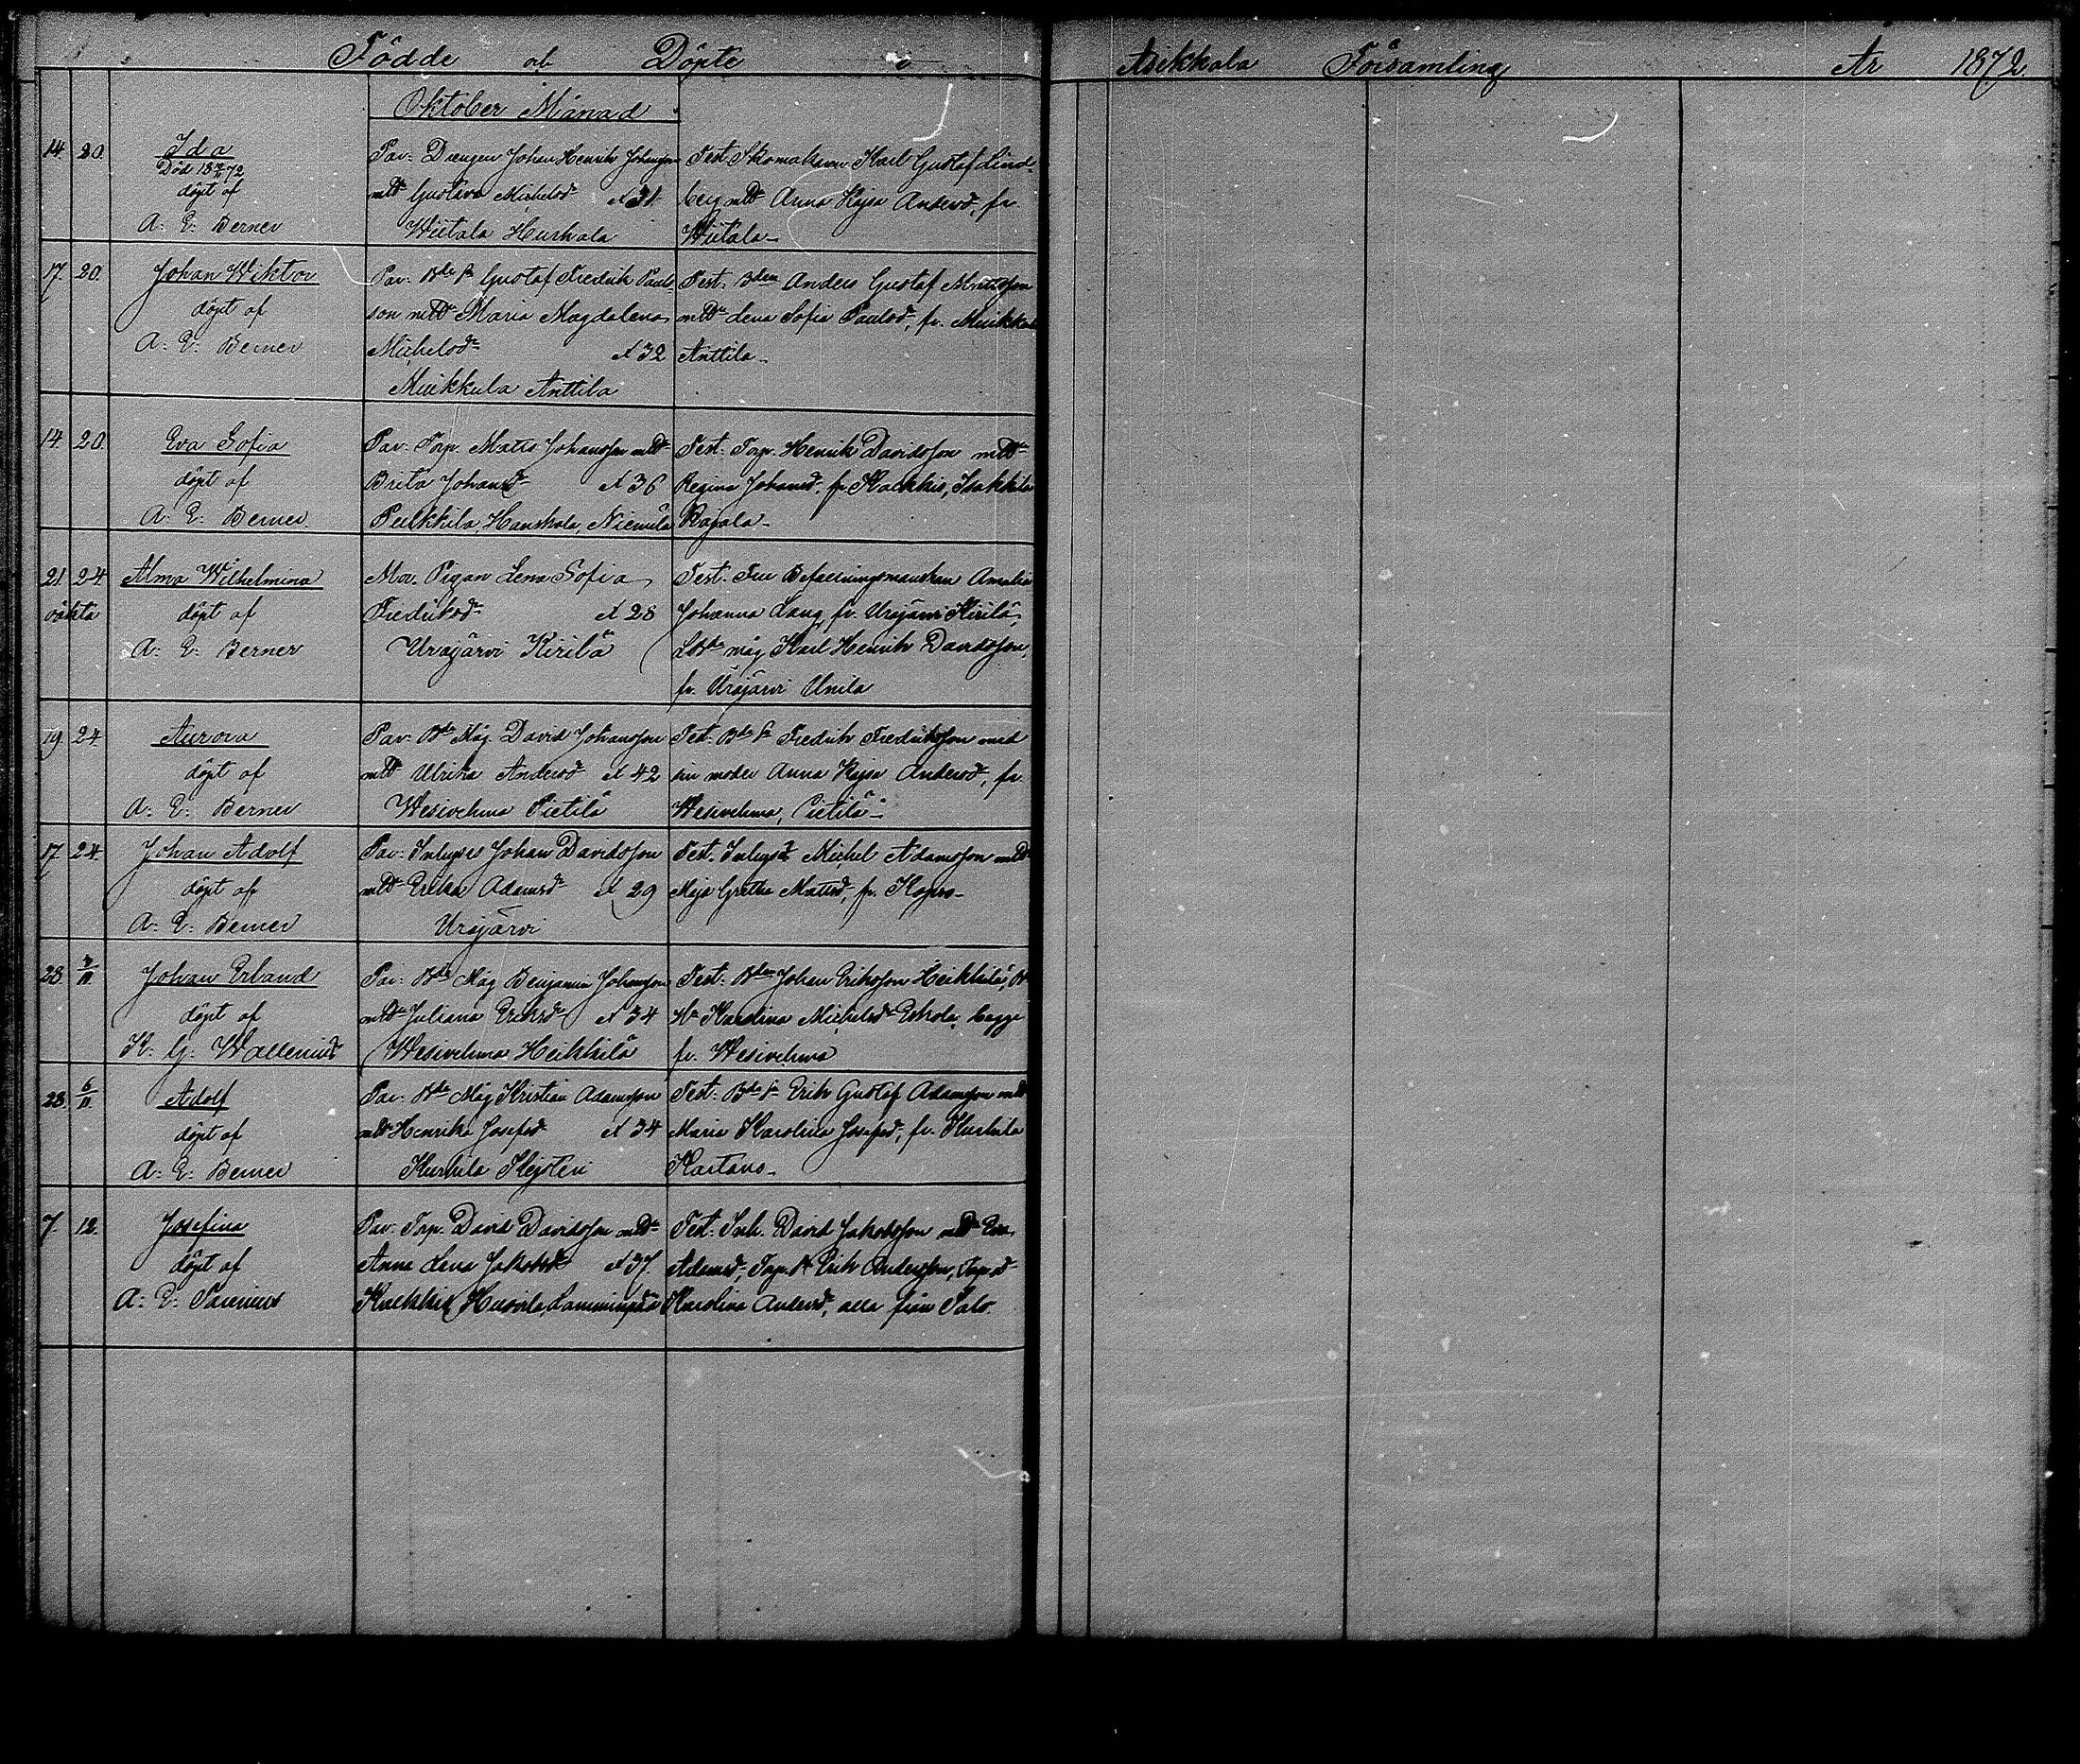 Födde och Döpte i Asikkala Församling År 1872.
Oktober Månad
14. 20. Ida
Död 18 72
döpt af
A: E: Berner
Par: Drengen Johan Henrik Johansson
mtd Gustava Michelsd. Å 31.
Wiitala Hushala
Test. Skomakaren Karl Gustaf Lind-
berg mtd Anna Kajsa Andersd, fr.
Wiitala
17. 20. Johan Wiktor
döpt af
A: E: Berner
Par: Bde sn Gustaf Fredrik Pauls-
son mtd Maria Magdalena
Michelsd Å 32
Muikkula Anttila
Test: Bden Anders Gustaf Mattsson
mtd Lena Sofia Paulsd, fr. Muikkula
Anttila
14 20. Eva Sofia
döpt af
A: E: Berner
Par: Torp. Matts Johansson mtd
Brita Johansd Å 36
Pulkkila, Hanskala, Niemilä
Test: Torp. Henrik Davidsson mtd
Regina Johansd, fr. Kalkkis,
21 24 Alma Wilhelmina
oäkta döpt af
A: E: Berner
Mor. Pigan Lena Sofia
Fredriksd Å 28
Urajärvi Kirilä
Test. Fru Befallningsmanskan Amalia
Johanna Lang, fr. Urajärvi Kirilä,
måg Karl Henrik Davidsson,
fr. Urajärvi Unila
19. 24. Aurora
döpt af
A: E: Berner
Par: Bde Måg. David Johansson
mtd Ulrika Andersd Å 42
Wesivehma Pietilä
Test: Bde sn Fredrik Fredriksson med
sin moder Anna Kajsa Andersd, fr.
Wesivehma, Pietilä
17 24. Johan Adolf
döpt af
A: E: Berner
Par: Inhyses Johan Davidsson
mtd Erika Adamsd Å 29
Urajärvi
Test. Inhyses Michel Adamsson mtd
Maja Gretha Mattsd, fr.
28. /11. Johan Erland
döpt af
K: G: Wallenius
Par: Bde Måg Benjamin Johansson
mtd Juliana Eriksd Å 34
Wesivehma Heikkilä
Test: Bden Johan Eriksson Heikkilä,
Karolina Michelsd Eskola, begge
fr. Wesivehma
28. 6/11. Adolf
döpt af
A: E: Berner
Par: Bde Måg Kristian Adamsson
mtd Henrika Josefsd Å 34
Kurhila
Test: Bde sn Erik Gustaf Adamsson mtd
Maria Karolina Josefsd, fr. Kurhila
Kartano
7. 12. Josefina
döpt af
A: E:
Par: Torp. David Davidsson mtd
Anna Lena Jakobsd Å 37.
Kalkkis
Test: Inh. David Jakobsson mtd Eva
Adamsd, Torp. Erik Andersson,
Karolina Andersd, alla från